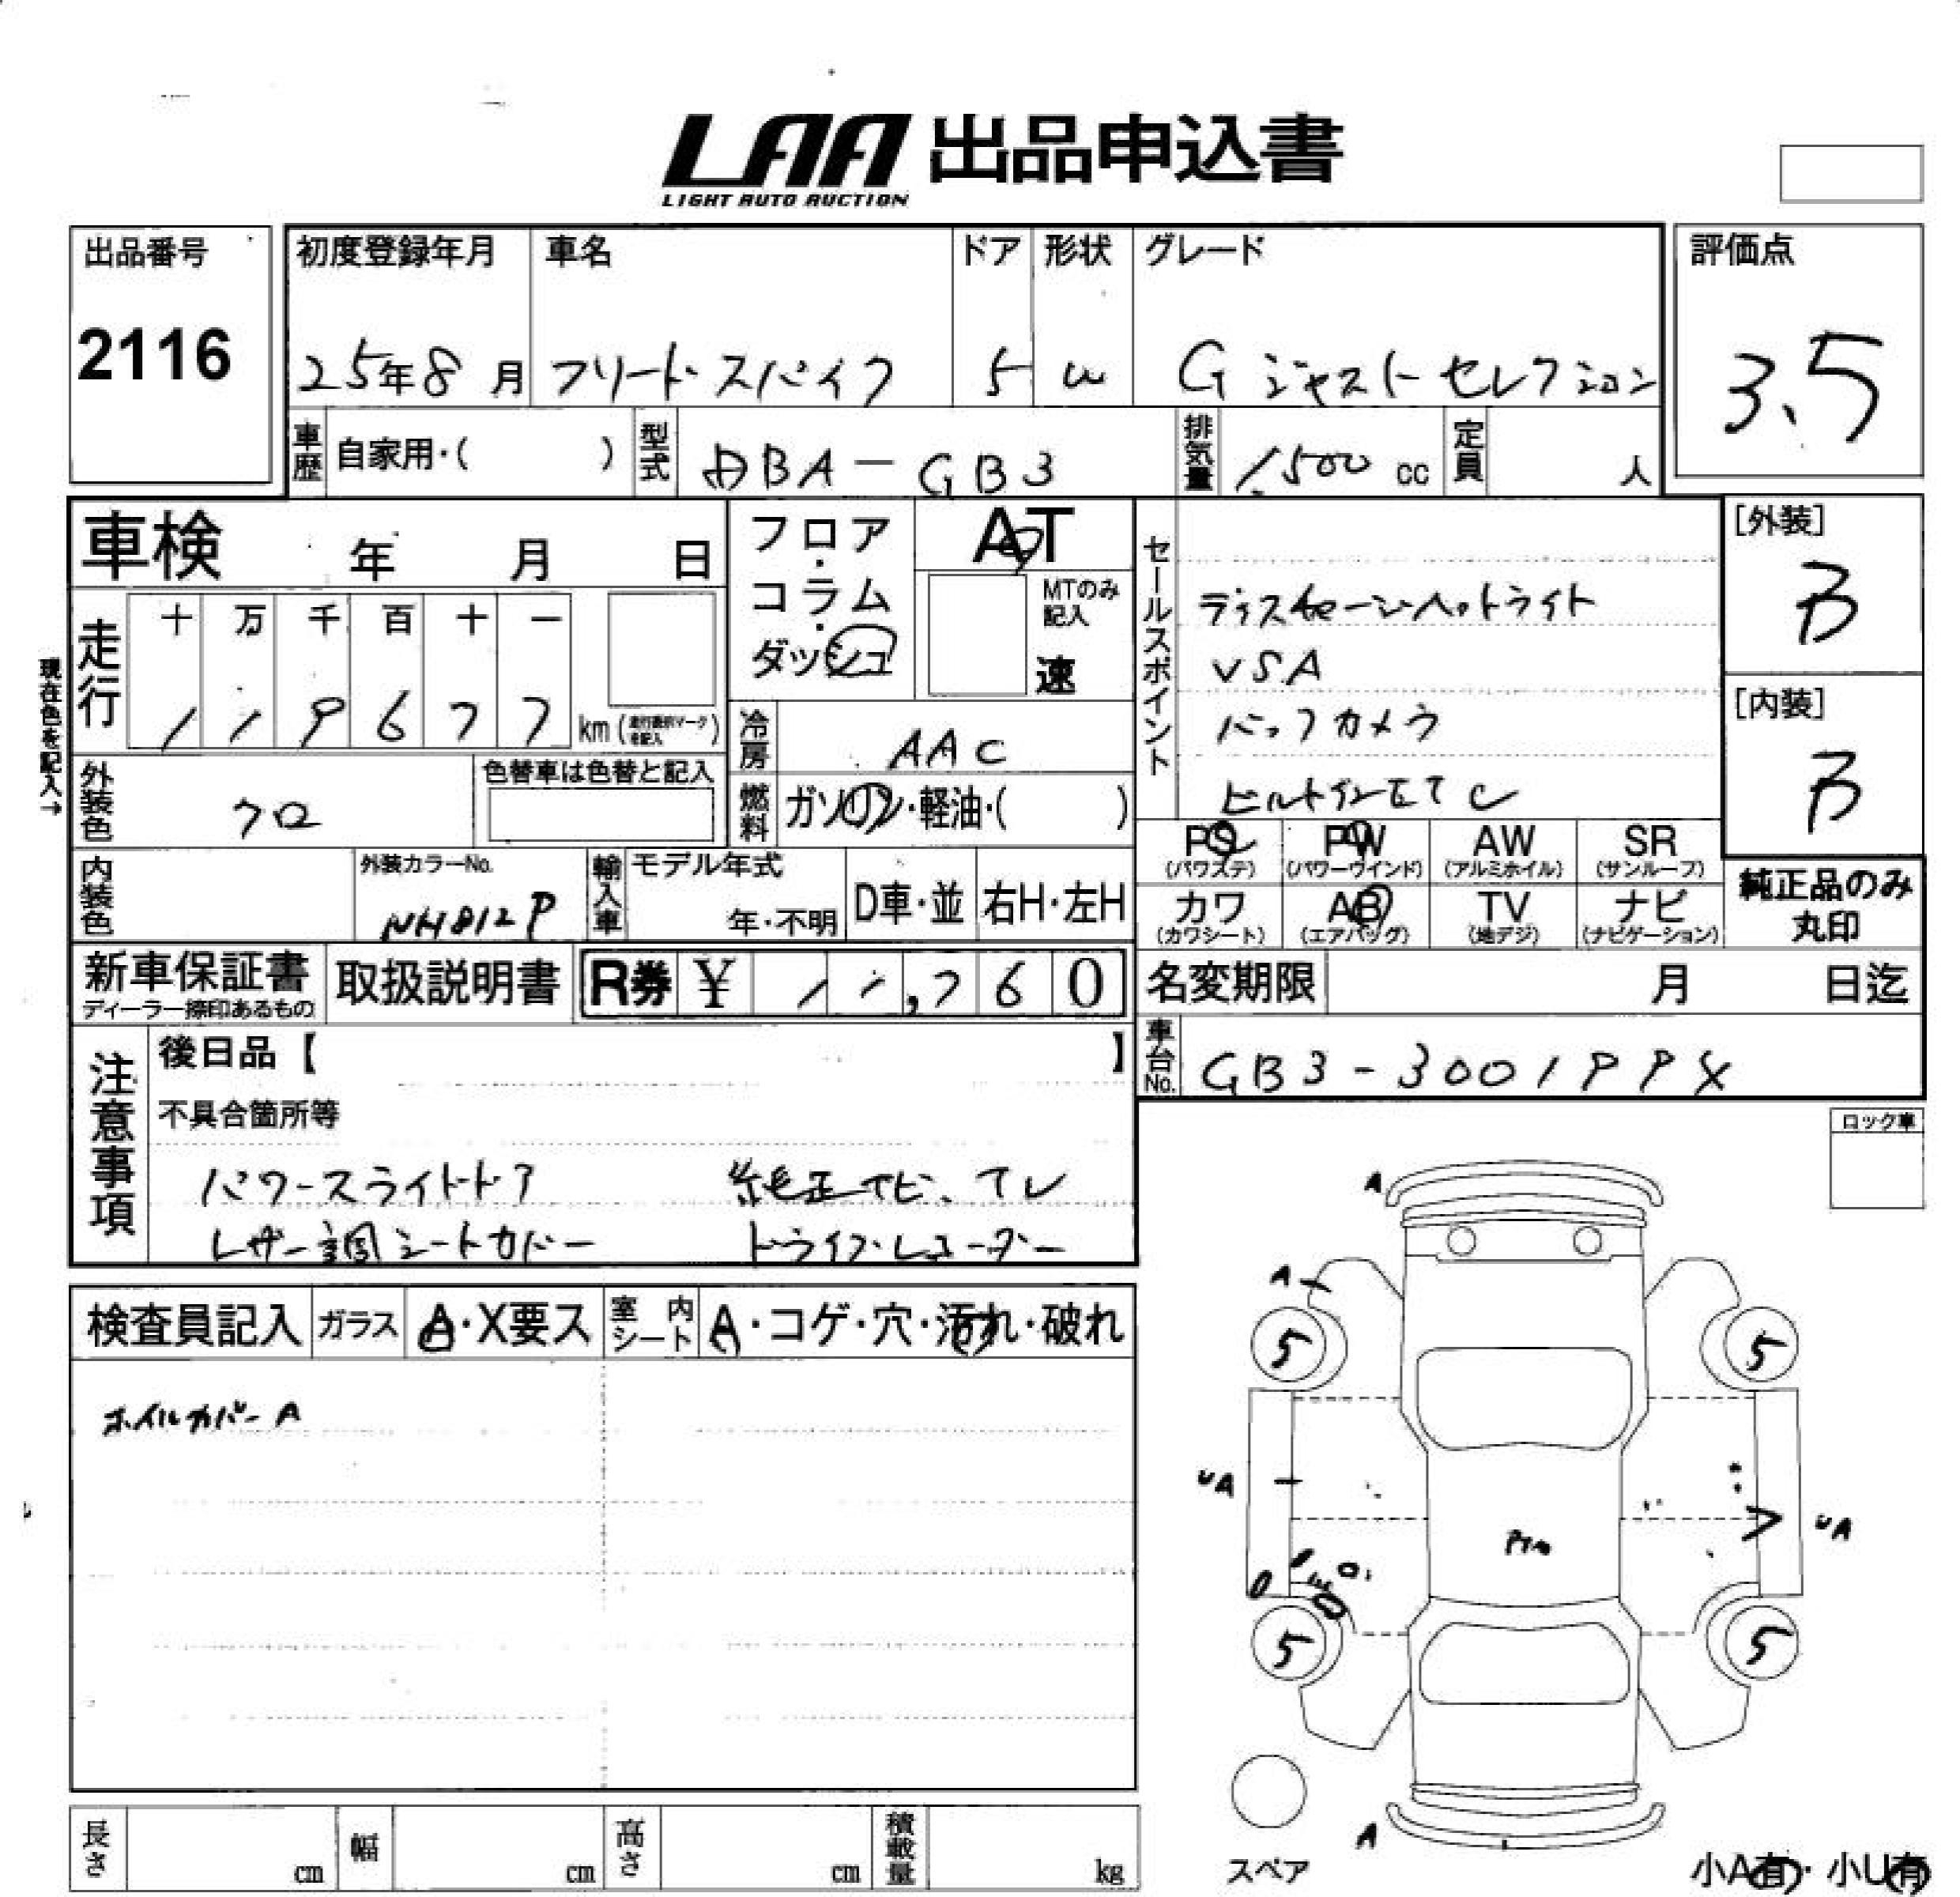 LAA 出品申込書
LIGHT AUTO AUCTION
出品番号
2116
初度登録年月
25年8月
車名
フリードスパイク
ドア
5
形状
W
グレード
G ジャストセレクション
評価点
3.5
車歴 自家用・( )
型式 DBA-GB3
排気量 1,500 cc
定員 人
車検 年 月 日
フロア・コラム・ダッシュ
AT
MTのみ記入
速
走行
十 万 千 百 十 一
1 1 9 6 7 7 km
現在色を記入→
冷房 AAC
燃料 ガソリン・軽油・( )
外装色 クロ
色替車は色替と記入
内装色
外装カラーNo.
NH812P
輸入車
モデル年式
年・不明
D車・並
右H・左H
セールスポイント
ディスチャージヘッドライト
VSA
バックカメラ
ビルトインETC
[外装]
B
[内装]
B
PS (パワステ)
PW (パワーウインド)
AW (アルミホイル)
SR (サンルーフ)
カワ (カワシート)
AB (エアバッグ)
TV (地デジ)
ナビ (ナビゲーション)
純正品のみ
丸印
新車保証書
ディーラー捺印あるもの
取扱説明書
R券 ¥ 11,760
名変期限 月 日迄
車台No. GB3-300199X
注意事項
後日品【 】
不具合箇所等
パワースライドドア 純正ナビ、テレ
レザー調シートカバー ドライブレコーダー
ロック車
検査員記入
ガラス A・X要ス
室内シート A・コゲ・穴・汚れ・破れ
ホイルカバーA
A
A
5
5
UA
UA
5
5
A
スペア
長さ cm
幅 cm
高さ cm
積載量 kg
小A有・小U有